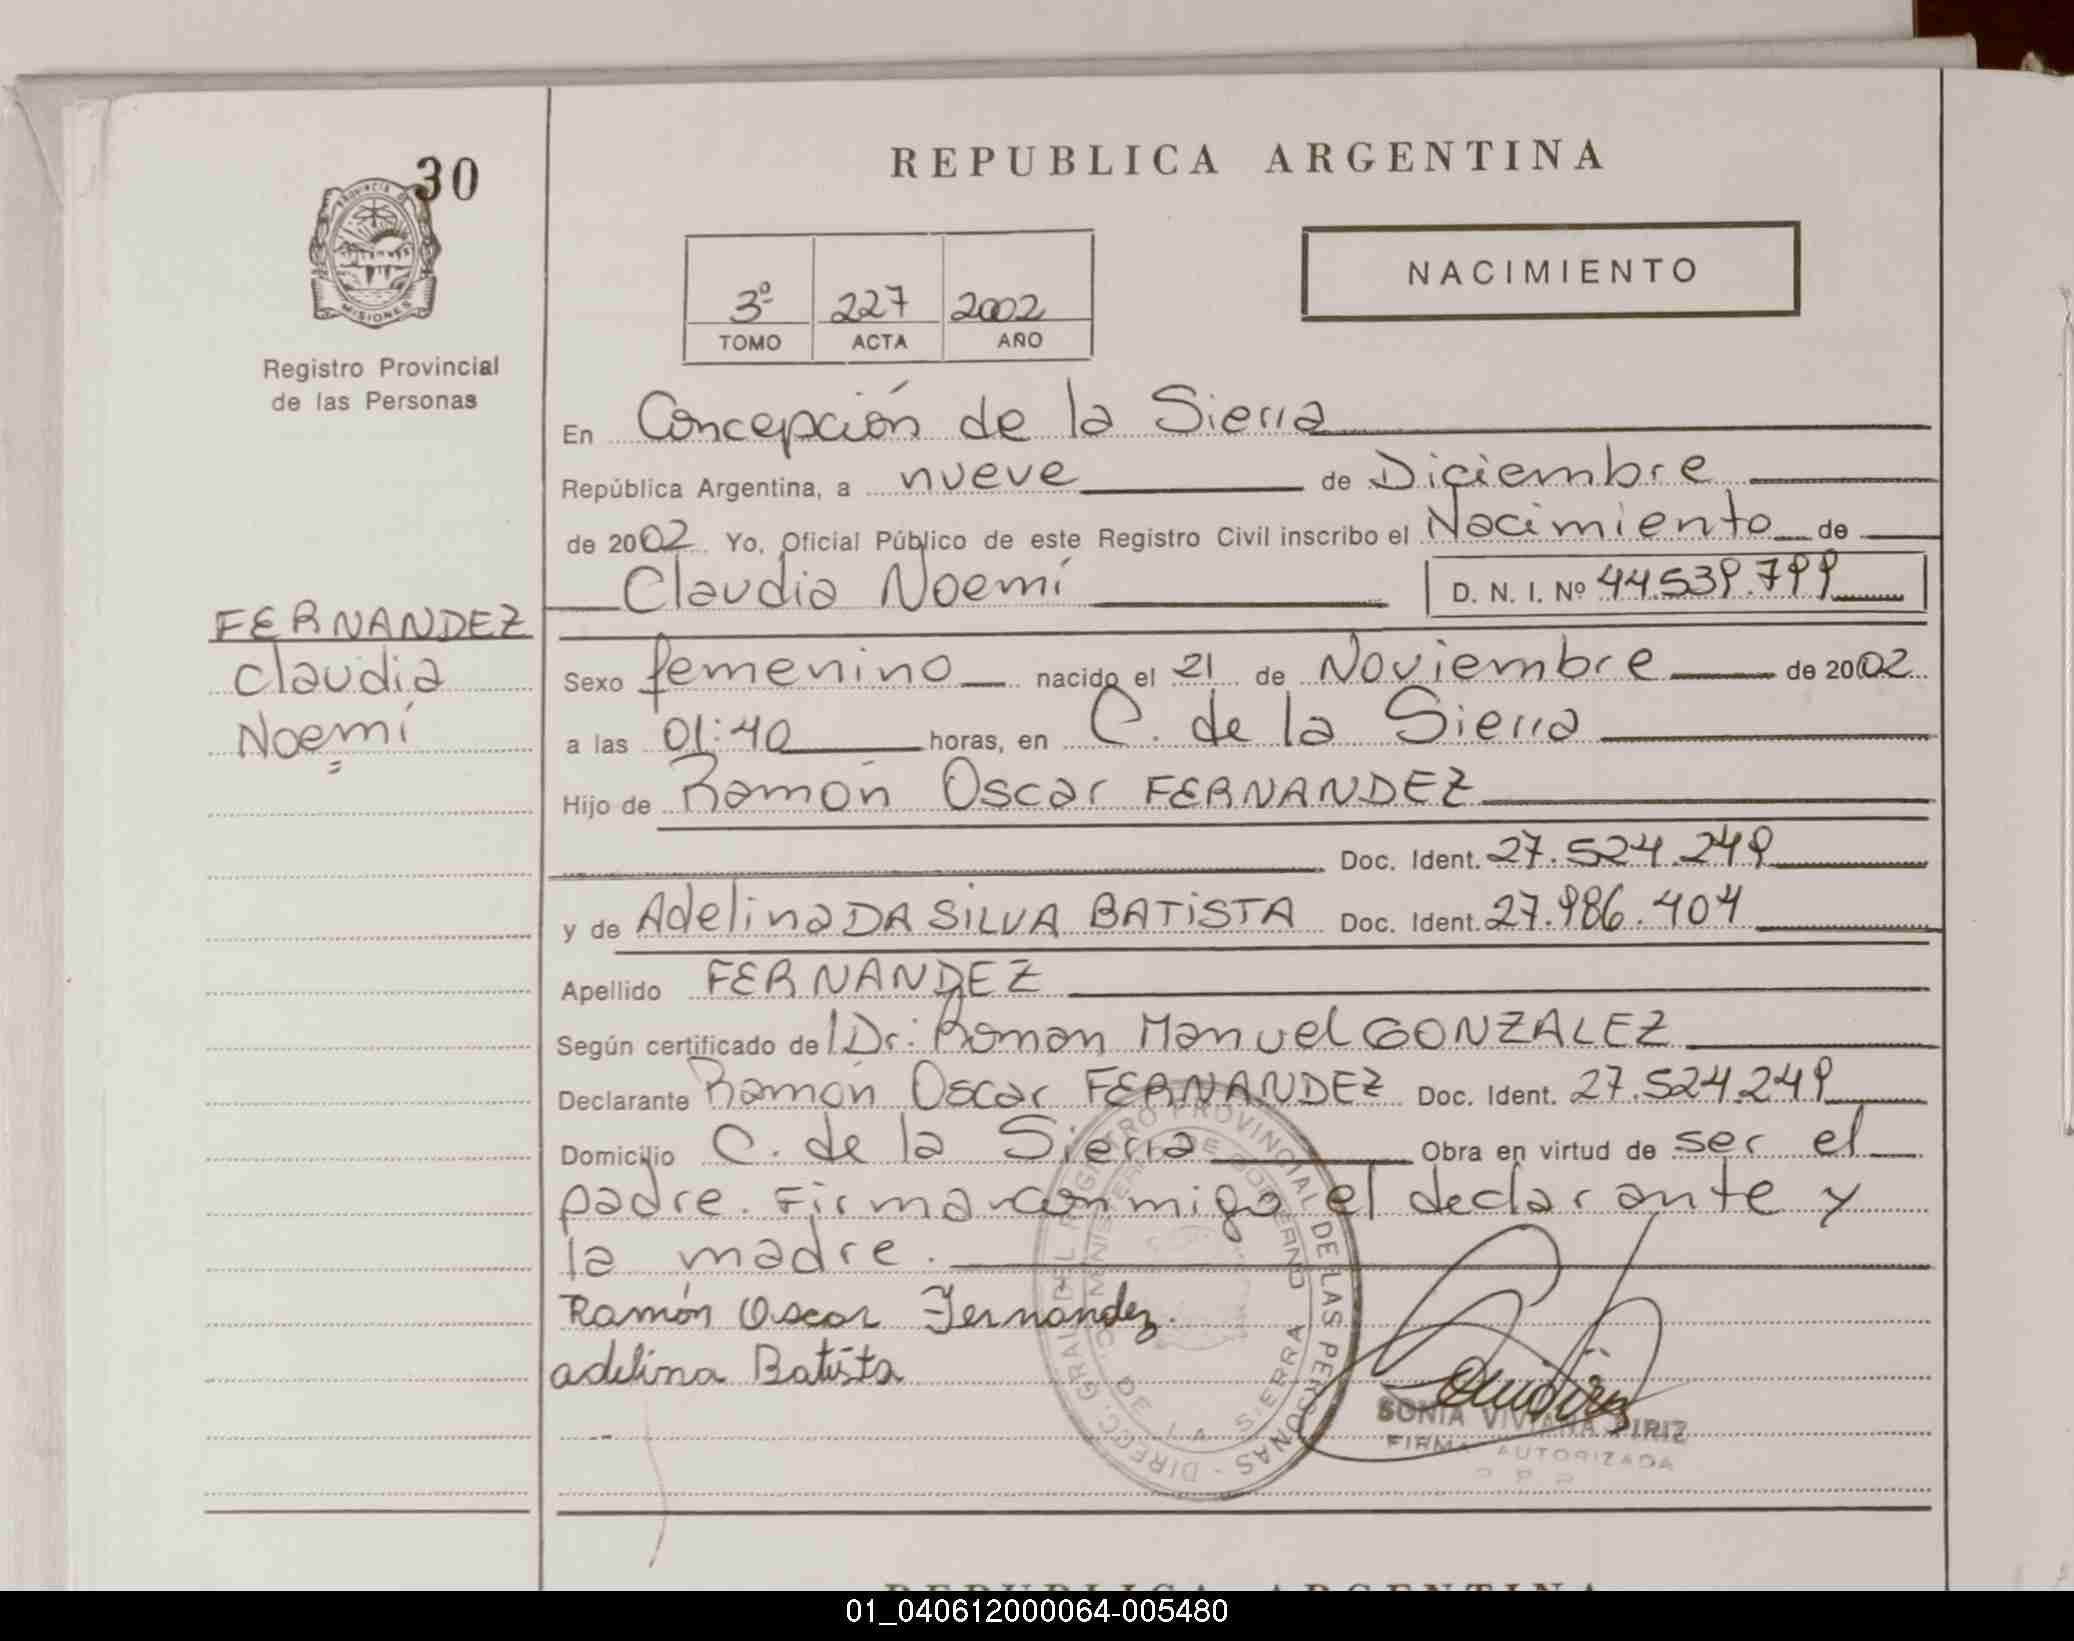 30
PROVINCIA DE
MISIONES
Registro Provincial
de las Personas
FERNANDEZ
Claudia
Noemí
REPUBLICA ARGENTINA
3º 227 2002
TOMO ACTA AÑO
NACIMIENTO
En Concepción de la Sierra
República Argentina, a nueve de Diciembre
de 2002 Yo, Oficial Público de este Registro Civil inscribo el Nacimiento de
Claudia Noemí D. N. I. Nº 44.539.799
Sexo femenino nacido el 21 de Noviembre de 2002
a las 01:40 horas, en C. de la Sierra
Hijo de Ramón Oscar FERNANDEZ
Doc. Ident. 27.524.249
y de Adelina DA SILVA BATISTA Doc. Ident. 27.986.404
Apellido FERNANDEZ
Según certificado del Dr: Roman Manuel GONZALEZ
Declarante Ramón Oscar FERNANDEZ Doc. Ident. 27.524.249
Domicilio C. de la Sierra Obra en virtud de ser el
padre. Firman conmigo el declarante y
la madre.
Ramón Oscar Fernandez.
adelina Batista
DIRECC. GRAL DEL REGISTRO PROVINCIAL DE LAS PERSONAS
DE GOBIERNO
DE LA SIERRA
SONIA VIVIANA PIRIZ
FIRMA AUTORIZADA
REPUBLICA ARGENTINA
01_040612000064-005480